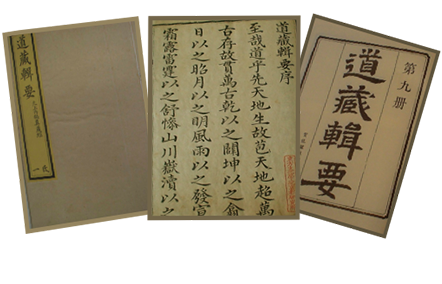 道藏輯要
一
道藏輯要序
至哉道乎先天地生故苞天地超萬
古存故貫萬古乾以之闢坤以之翕
日以之昭月以之明風雨以之發宣
霜露雷霆以之舒慘山川嶽瀆以之
第九册
道藏輯要